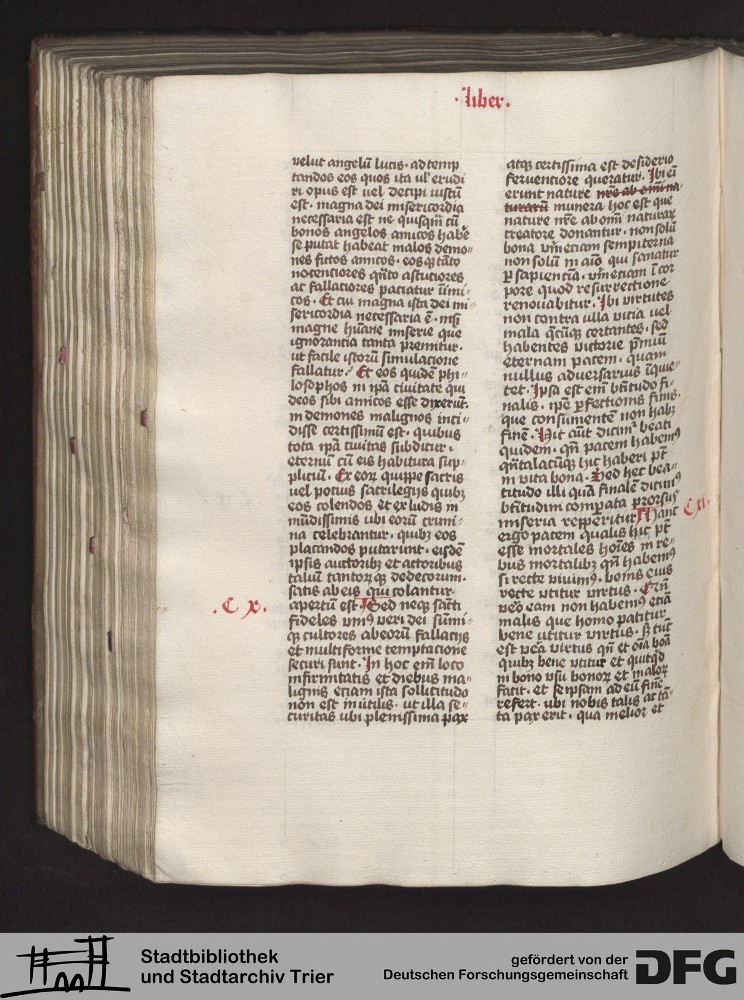 ·liber·
velut angelū lucis· ad temp
tandos eos quos ita vl' erudi
ri opus est vel decipi iustū
est· magna dei misericordia
necessaria est ne quisqm̄ cū
bonos angelos amicos habē
se putat habeat malos demo
nes fictos amicos· eosqꝫ tāto
nocentiores qn̄to astutiores
ac fallatiores paciatur inimi
cos· Et cui magna ista dei mi
sericordia necessaria ē· nisi
magne hūane miserie que
ignorancia tanta premitur·
ut facile istorū simulacione
fallatur· Et eos quidē phi
losophos in ip̄a civitate qui
deos sibi amicos esse dixerūt·
in demones malignos inci
disse certissimū est· quibus
tota ip̄a civitas subditur·
eternū cū eis habitura sup
pliciū· Ex eoꝝ quippe sacris
vel pocius sacrilegijs quibꝫ
eos colendos et ex ludis in
mūdissimis ubi eorū crimi
na celebrantur· quibꝫ eos
placandos putarunt· eisdē
ipsis auctoribꝫ et actoribus
taliū tantorqꝫ dedecorum·
satis ab eis qui colantur
apertū est· Sed neqꝫ sācti
·C x·
fideles vniꝰ veri dei sūmi
qꝫ cultores ab eorū fallacijs
et multiforme temptacione
securi sunt· In hoc em̄ loco
infirmitatis et diebus ma
lignis eciam ista sollicitudo
nōn est inutilis· ut illa se
curitas ubi plenissima pax
atqꝫ certissima est desiderio
ferventiore queratur· Ibi em̄
erunt nature nr̄e ab omni na
turarū munera hoc est que
nature nr̄e ab om̄i naturaꝝ
creatore donantur· non solū
bona vm̄ etiam sempiterna
non solū in aīo qui sanatur
ꝑ sapienciā· vm̄ etiam ī cor
pore quod resurrectione
renouabitur· Ibi virtutes
non contra ulla vicia vel
mala qᷓcūqꝫ certantes· sed
habentes victorie p̄miū
eternam pacem· quam
nullus adversarius īquie
tet· Ipsa est em̄ btitudo fi
nalis· ip̄e ꝑfectionis finis·
que consumentē non habꝫ
finē· Hic aūt dicimꝰ beati
quidem· qn̄ pacem habemꝰ
qn̄talacūqꝫ hic haberi pt̄
in vita bona· Sed hec bea
titudo illi quā finalē dicimꝰ
btitudini comparata prorsus
miseria repperitur Hanc
C xi·
ergo pacem qualis hic pt̄
esse mortales hoīes in re
bus mortalibꝫ qn̄ habemꝰ
si recte vivimꝰ· bonis eius
recte vtitur virtus· Cum
v̄o eam non habemꝰ etiā
malis que homo patitur
bene utitur virtus· Sꝫ tūc
est vera virtus qn̄ et oīa boā
quibꝫ bene vtitur et quitqd
in bono vsu bonoꝝ et maloꝝ
facit· et se ip̄sam ad eū finē
refert· ubi nobis talis ac tā
ta pax erit· qua melior et
Stadtbibliothek
und Stadtarchiv Trier
gefördert von der
Deutschen Forschungsgemeinschaft
DFG